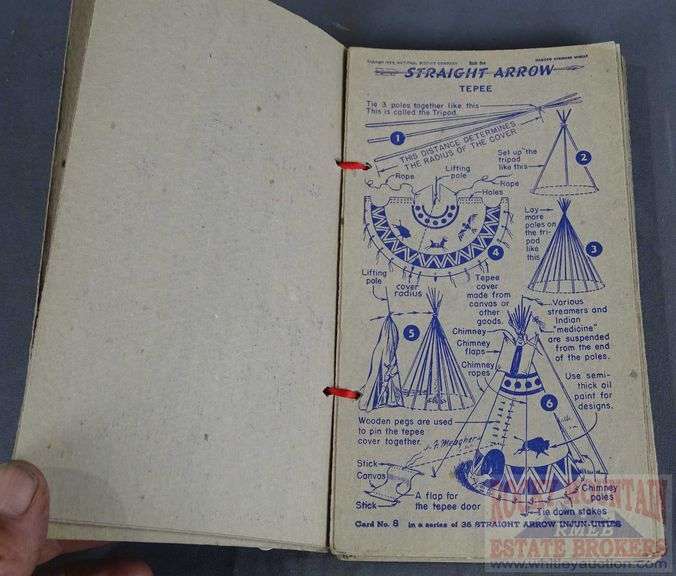 STRAIGHT ARROW
TEPEE
Tie 3 poles together like this
This is called the Tripod.
1
THIS DISTANCE DETERMINES
THE RADIUS OF THE COVER
Set up the
tripod
like this
2
Rope
Lifting
pole
Rope
Holes
4
Lay
more
poles on
the tri-
pod
like
this
3
Lifting
pole
cover
radius
5
Tepee
cover
made from
canvas or
other
goods.
Various
streamers and
Indian
"medicine"
are suspended
from the end
of the poles.
Chimney
Chimney
flaps
Chimney
ropes
Use semi-
thick oil
paint for
designs.
6
Wooden pegs are used
to pin the tepee
cover together.
Stick
Canvas
Stick
A flap for
the tepee door
Chimney
poles
Tie down stakes
Card No. 8 in a series of 36 STRAIGHT ARROW INJUN-UITIES
ROCKY MOUNTAIN
RMEB
ESTATE BROKERS
www.whitleyauction.com